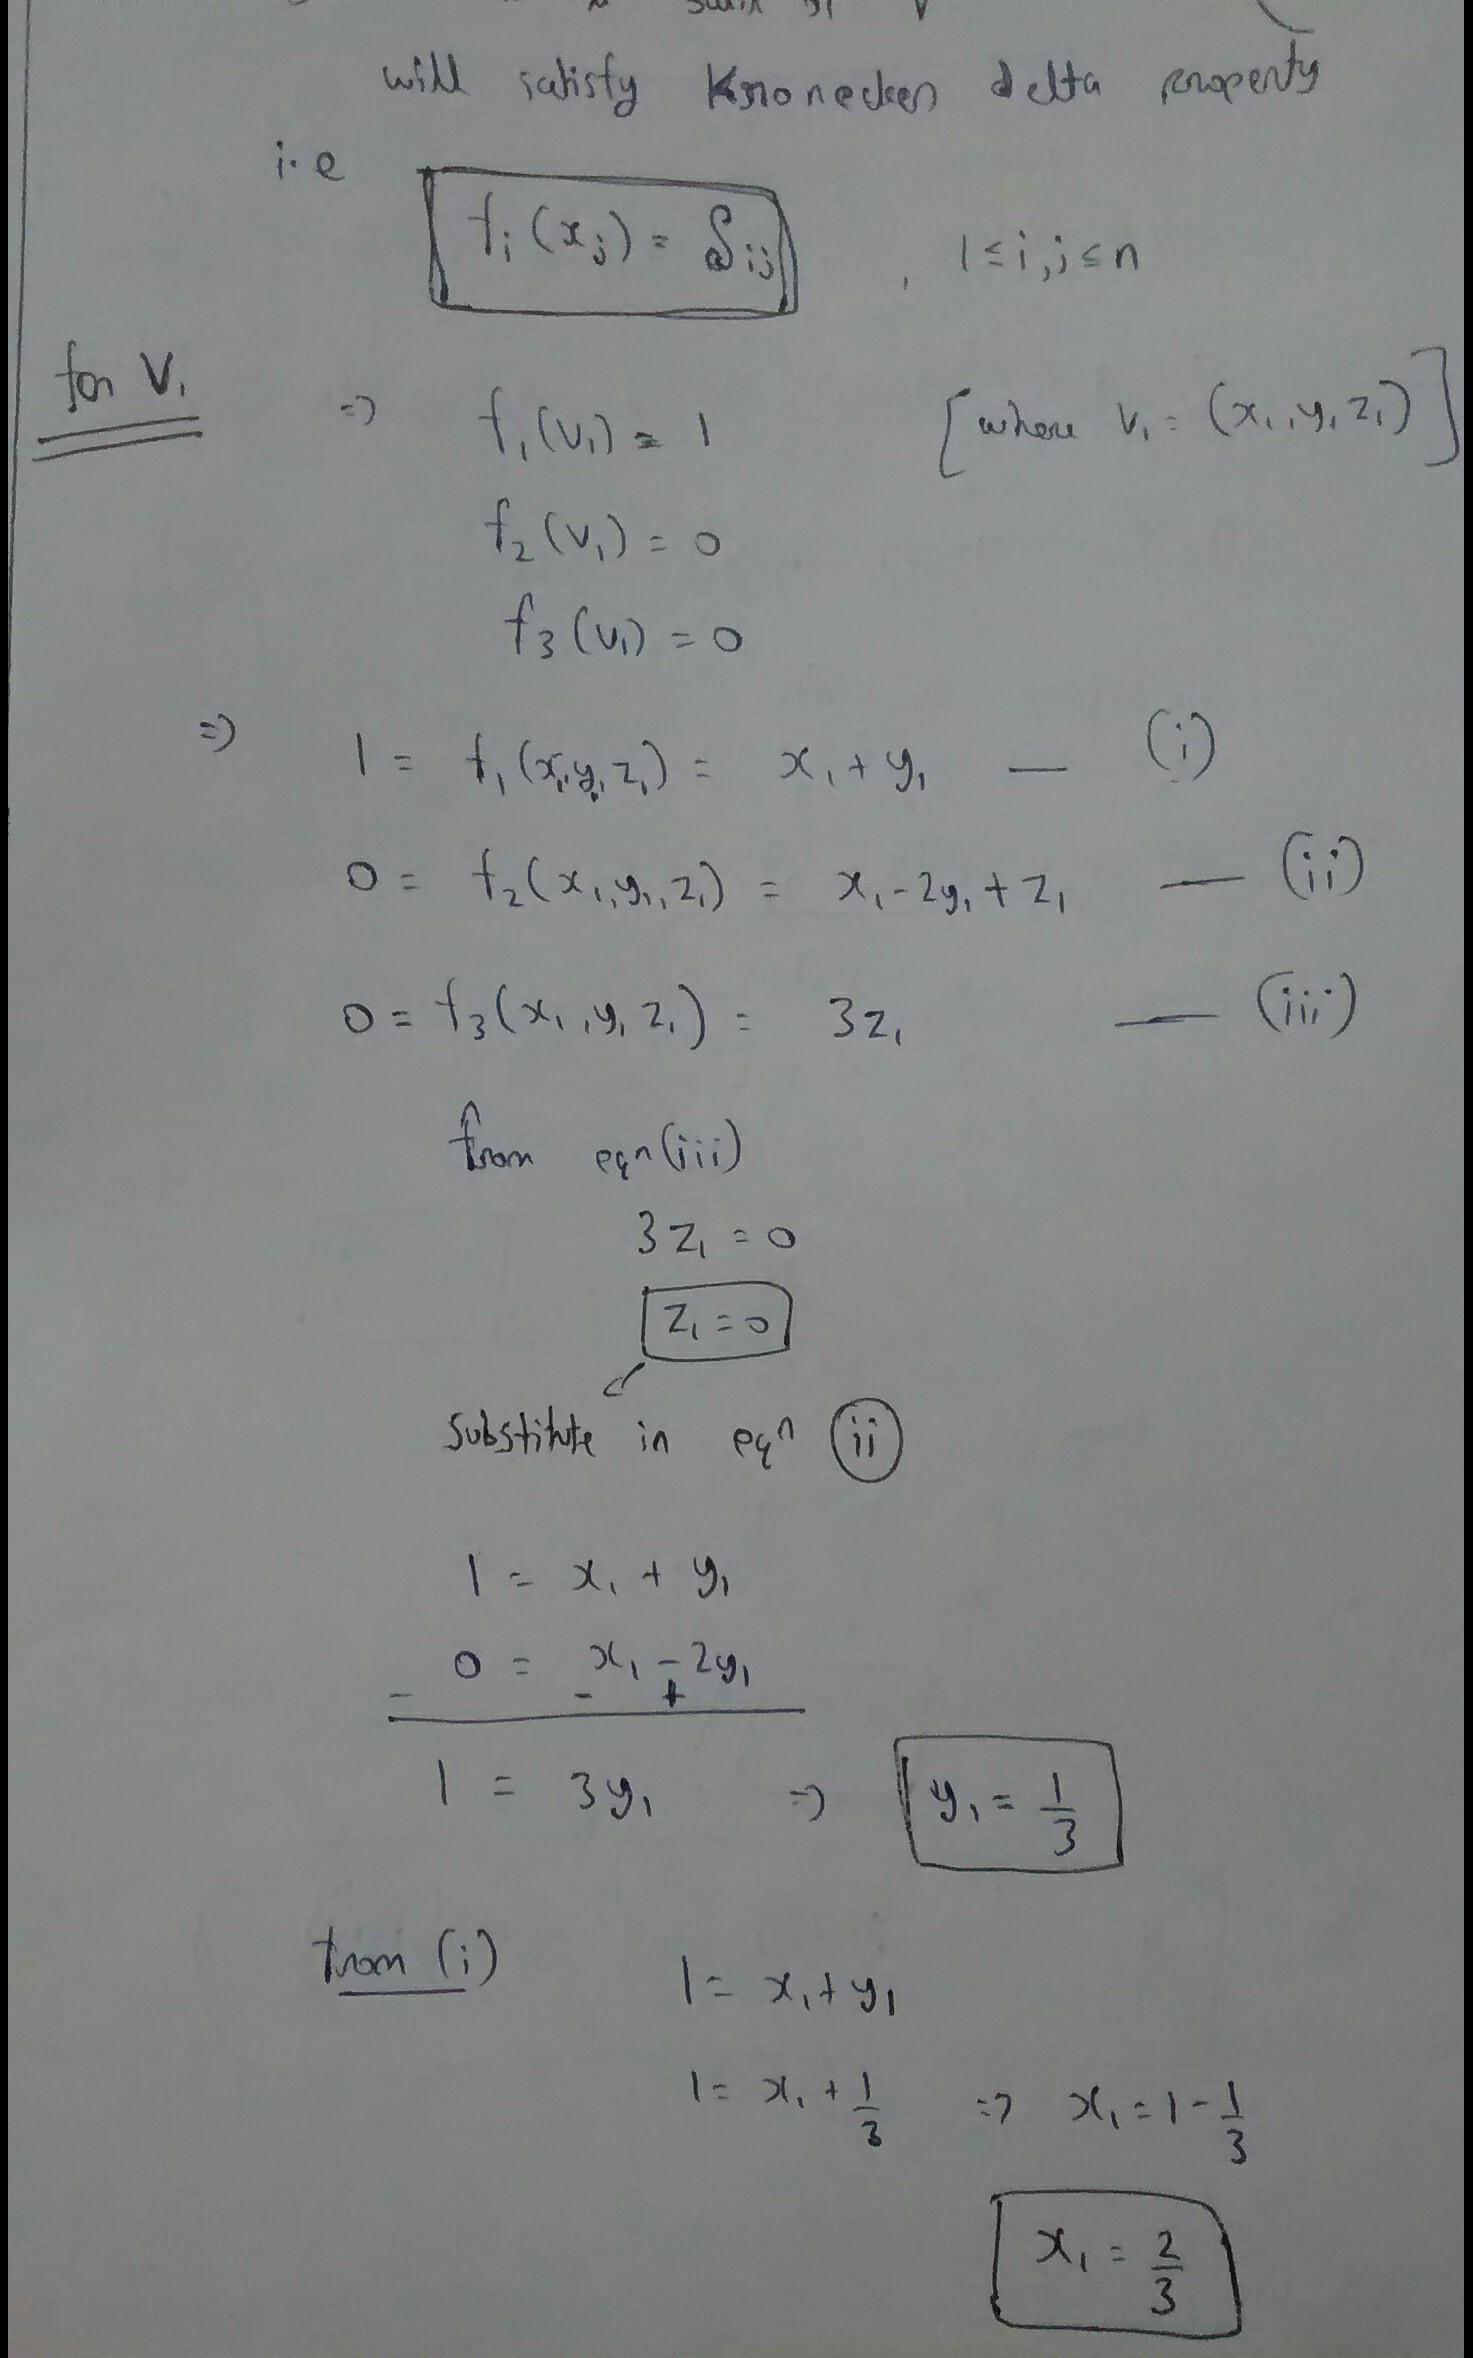 will satisfy Kronecker delta property
i.e
fᵢ(xⱼ) = δᵢⱼ , 1 ≤ i, j ≤ n
for V₁ ⇒ f₁(v₁) = 1 [where v₁ = (x₁, y₁ z₁)]
f₂(v₁) = 0
f₃(v₁) = 0
⇒ 1 = f₁(x₁, y₁, z₁) = x₁ + y₁ — (i)
0 = f₂(x₁, y₁, z₁) = x₁ - 2y₁ + z₁ — (ii)
0 = f₃(x₁, y₁ z₁) = 3z₁ — (iii)
from eqn (iii)
3z₁ = 0
z₁ = 0
substitute in eqⁿ (ii)
1 = x₁ + y₁
0 = x₁ - 2y₁
- - +
1 = 3y₁ ⇒ y₁ = 1/3
from (i) 1 = x₁ + y₁
1 = x₁ + 1/3 ⇒ x₁ = 1 - 1/3
x₁ = 2/3